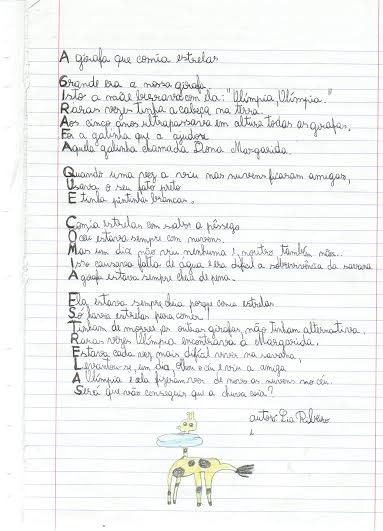 A girafa que comia estrelas
Grande era a nossa girafa,
Isto a mãe berrava com ela: "Olímpia, Olímpia."
Raras vezes tinha a cabeça na terra.
Aos cinco anos ultrapassara em altura todas as girafas,
Foi a galinha que a ajudou
Aquela galinha chamada Dona Margarida.
Quando uma vez a viu nas nuvens ficaram amigas,
Usava o seu fato preto
E tinha pintinhas brancas.
Comia estrelas com sabor a pêssego
O céu estava sempre com nuvens.
Mas um dia não viu nenhuma e noutro também não...
Isso causava falta de água e era difícil a sobrevivência da savana
A girafa estava sempre cheia de pena.
Ela estava sempre cheia porque comia estrelas
Só havia estrelas para comer!
Tinham de morrer as outras girafas, não tinham alternativa.
Raras vezes Olímpia encontrava a Margarida.
Estava cada vez mais difícil viver na savana,
Levantou-se, um dia, olhou o céu e viu a amiga
A Olímpia e ela fizeram ver de novo as nuvens no céu.
Será que vão conseguir que a chuva caia?
autor: Lia Ribeiro